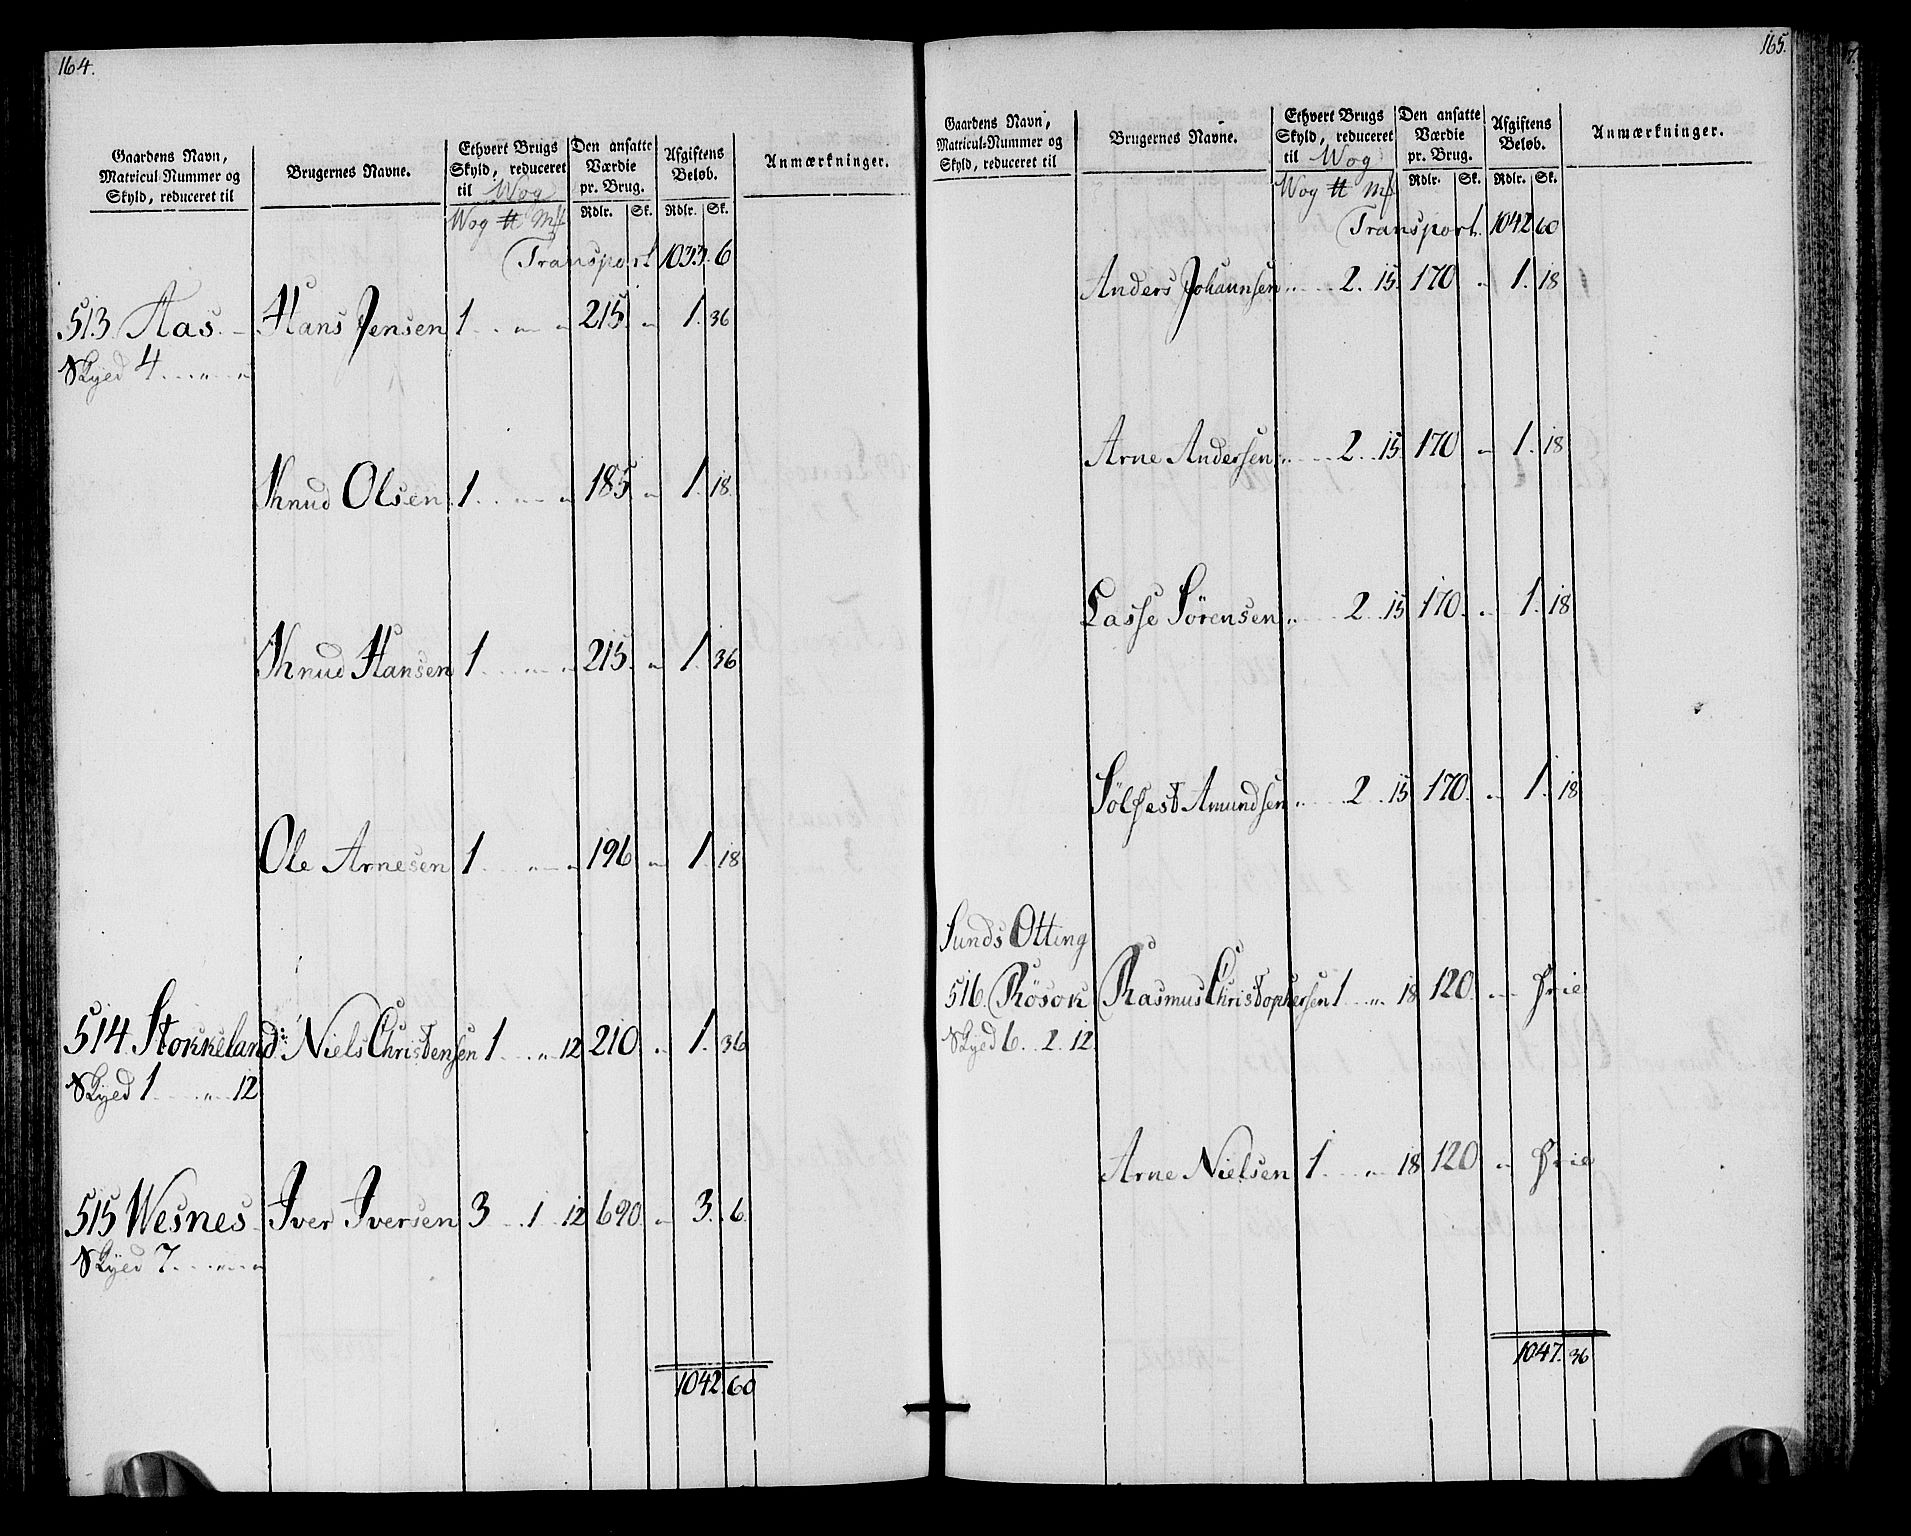 164.
Gaardens Navn, Matricul-Nummer og Skyld, reduceret til
Brugernes Navne.
Ethvert Brugs Skyld, reduceret til Wog
Den ansatte Værdie pr. Brug.
Afgiftens Beløb.
Anmærkninger.
Wog ℔ Mk Rdlr. Sk. Rdlr. Sk.
Transport 1033. 6
513 Aas. Hans Jensen 1 . . „ „ 215. „ 1. 36
Skyed 4 . . . „ . . „
Knud Olsen 1 . . „ „ 185 „ 1. 18.
Knud Hansen 1 . . „ „ 215. „ 1. 36
Ole Arnesen 1 . . „ „ 196 „ 1. 18
514 Stokkeland: Niels Christensen 1 . . „ 12 210 „ 1. 36
Skyed 1 . . . „ 12
515 Wesnes Iver Iversen 3 . . 1 . . 12 690. „ 3. 6.
Skyed 7 . . . „ . . „
1042. 60
165.
Gaardens Navn, Matricul-Nummer og Skyld, reduceret til
Brugernes Navne.
Ethvert Brugs Skyld, reduceret til Wog
Den ansatte Værdie pr. Brug.
Afgiftens Beløb.
Anmærkninger.
Wog ℔ Mk Rdlr. Sk. Rdlr. Sk.
Transport. 1042 60
Anders Johannsen „ . . 2. 15. 170 „ 1. 18
Arne Andersen „ . . 2 . . 15 170 „ 1. 18
Lasse Sörensen „ . . 2 . . 15 170. „ 1. 18
Sölfest Amundsen „ . . 2 . . 15 170. „ 1. 18
Sunds Otting
516. Rösok Rasmus Christophersen 1 . . „ 18 120. „ frie
Skyed 6. . 2. 12.
Arne Nielsen 1 . . „ 18 120 „ frie
1047. 36